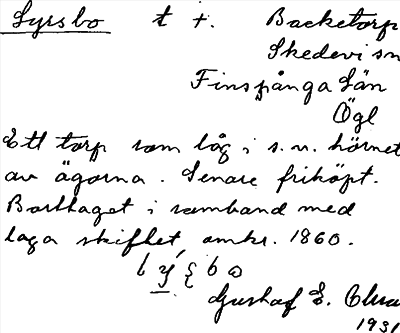 Syrsbo t +. Backetorp
Skedevi sn
Finspånga Län
Ögl
Ett torp som låg i s.v. hörnet
av ägorna. Senare friköpt.
Borttaget i samband med
laga skiftet omkr. 1860.
Gustaf E.
1931